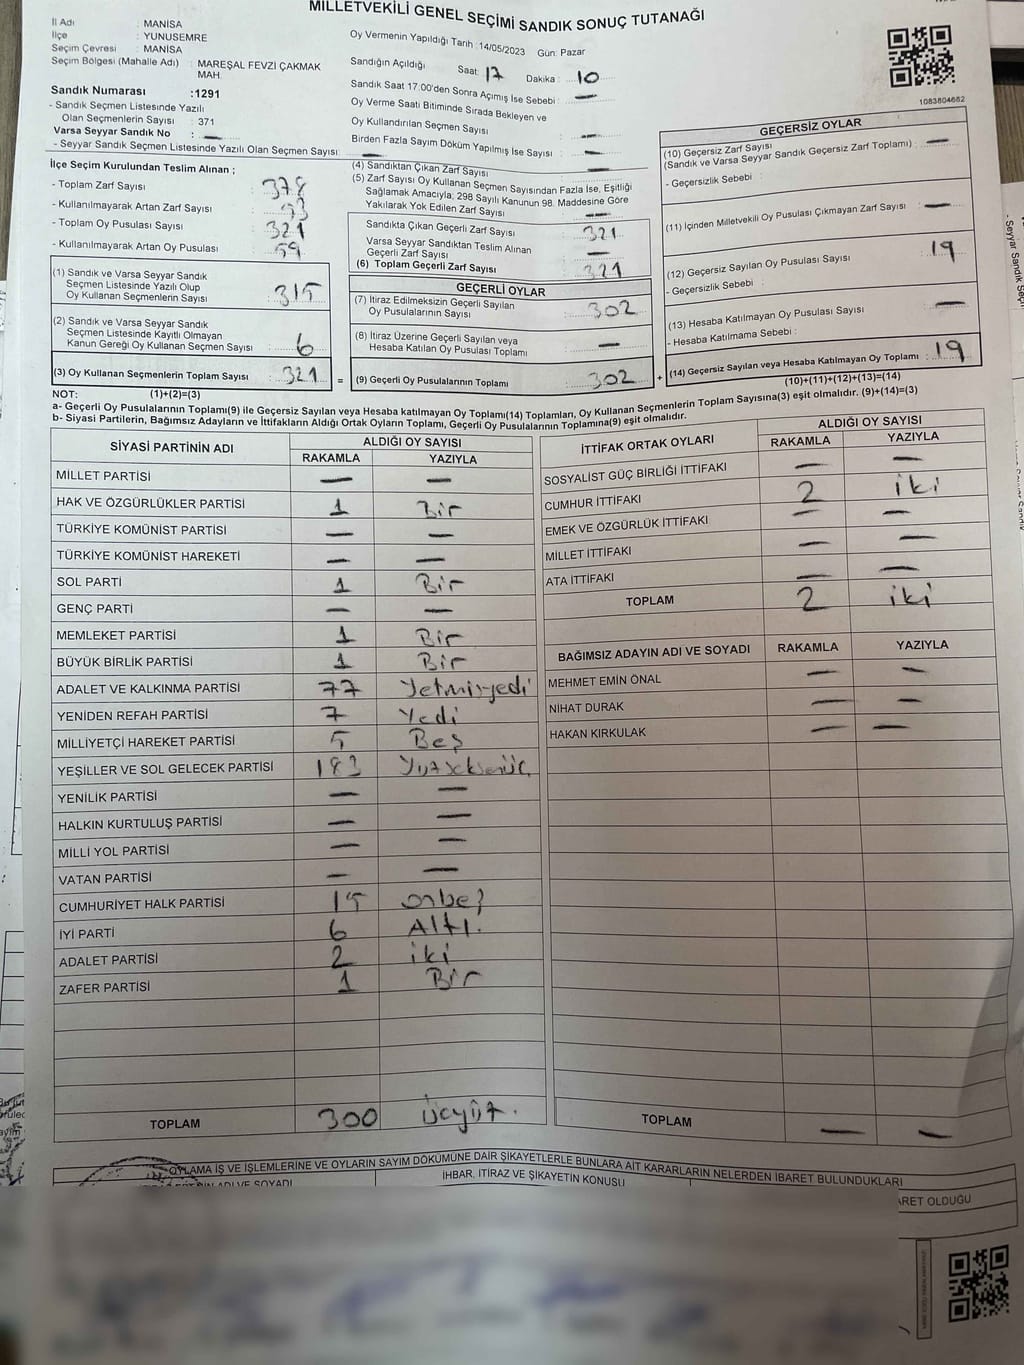 MİLLETVEKİLİ GENEL SEÇİMİ SANDIK SONUÇ TUTANAĞI
İl Adı : MANİSA
İlçe : YUNUSEMRE
Seçim Çevresi : MANİSA
Seçim Bölgesi (Mahalle Adı) : MAREŞAL FEVZİ ÇAKMAK MAH.
Sandık Numarası :1291
- Sandık Seçmen Listesinde Yazılı Olan Seçmenlerin Sayısı : 371
Varsa Seyyar Sandık No : —
- Seyyar Sandık Seçmen Listesinde Yazılı Olan Seçmen Sayısı: —
Oy Vermenin Yapıldığı Tarih :14/05/2023 Gün: Pazar
Sandığın Açıldığı Saat: 17 Dakika : 10
Sandık Saat 17.00'den Sonra Açımış İse Sebebi : —
Oy Verme Saati Bitiminde Sırada Bekleyen ve
Oy Kullandırılan Seçmen Sayısı : —
Birden Fazla Sayım Döküm Yapılmış İse Sayısı : —
1083804662
İlçe Seçim Kurulundan Teslim Alınan ;
- Toplam Zarf Sayısı : 378
- Kullanılmayarak Artan Zarf Sayısı :
- Toplam Oy Pusulası Sayısı : 321
- Kullanılmayarak Artan Oy Pusulası : 59
(1) Sandık ve Varsa Seyyar Sandık
Seçmen Listesinde Yazılı Olup
Oy Kullanan Seçmenlerin Sayısı : 315
(2) Sandık ve Varsa Seyyar Sandık
Seçmen Listesinde Kayıtlı Olmayan
Kanun Gereği Oy Kullanan Seçmen Sayısı : 6
(3) Oy Kullanan Seçmenlerin Toplam Sayısı : 321
(4) Sandıktan Çıkan Zarf Sayısı : —
(5) Zarf Sayısı Oy Kullanan Seçmen Sayısından Fazla İse, Eşitliği
Sağlamak Amacıyla, 298 Sayılı Kanunun 98. Maddesine Göre
Yakılarak Yok Edilen Zarf Sayısı : —
Sandıkta Çıkan Geçerli Zarf Sayısı : 321
Varsa Seyyar Sandıktan Teslim Alınan
Geçerli Zarf Sayısı : —
(6) Toplam Geçerli Zarf Sayısı : 321
GEÇERLİ OYLAR
(7) İtiraz Edilmeksizin Geçerli Sayılan
Oy Pusulalarının Sayısı : 302
(8) İtiraz Üzerine Geçerli Sayılan veya
Hesaba Katılan Oy Pusulası Toplamı : —
= (9) Geçerli Oy Pusulalarının Toplamı : 302
GEÇERSİZ OYLAR
(10) Geçersiz Zarf Sayısı
(Sandık ve Varsa Seyyar Sandık Geçersiz Zarf Toplamı) : —
- Geçersizlik Sebebi :
(11) İçinden Milletvekili Oy Pusulası Çıkmayan Zarf Sayısı : —
(12) Geçersiz Sayılan Oy Pusulası Sayısı : 19
- Geçersizlik Sebebi :
(13) Hesaba Katılmayan Oy Pusulası Sayısı : —
- Hesaba Katılmama Sebebi :
+ (14) Geçersiz Sayılan veya Hesaba Katılmayan Oy Toplamı : 19
NOT: (1)+(2)=(3) (10)+(11)+(12)+(13)=(14)
a- Geçerli Oy Pusulalarının Toplamı(9) ile Geçersiz Sayılan veya Hesaba katılmayan Oy Toplamı(14) Toplamları, Oy Kullanan Seçmenlerin Toplam Sayısına(3) eşit olmalıdır. (9)+(14)=(3)
b- Siyasi Partilerin, Bağımsız Adayların ve İttifakların Aldığı Ortak Oyların Toplamı, Geçerli Oy Pusulalarının Toplamına(9) eşit olmalıdır.
SİYASİ PARTİNİN ADI ALDIĞI OY SAYISI
RAKAMLA YAZIYLA
MİLLET PARTİSİ — —
HAK VE ÖZGÜRLÜKLER PARTİSİ 1 Bir
TÜRKİYE KOMÜNİST PARTİSİ — —
TÜRKİYE KOMÜNİST HAREKETİ — —
SOL PARTİ 1 Bir
GENÇ PARTİ — —
MEMLEKET PARTİSİ 1 Bir
BÜYÜK BİRLİK PARTİSİ 1 Bir
ADALET VE KALKINMA PARTİSİ 77 Yetmişyedi
YENİDEN REFAH PARTİSİ 7 Yedi
MİLLİYETÇİ HAREKET PARTİSİ 5 Beş
YEŞİLLER VE SOL GELECEK PARTİSİ 183 Yüzseksenüç
YENİLİK PARTİSİ — —
HALKIN KURTULUŞ PARTİSİ — —
MİLLİ YOL PARTİSİ — —
VATAN PARTİSİ — —
CUMHURİYET HALK PARTİSİ 15 onbeş
İYİ PARTİ 6 Altı.
ADALET PARTİSİ 2 iki
ZAFER PARTİSİ 1 Bir
TOPLAM 300 Üçyüz.
İTTİFAK ORTAK OYLARI ALDIĞI OY SAYISI
RAKAMLA YAZIYLA
SOSYALİST GÜÇ BİRLİĞİ İTTİFAKI — —
CUMHUR İTTİFAKI 2 iki
EMEK VE ÖZGÜRLÜK İTTİFAKI — —
MİLLET İTTİFAKI — —
ATA İTTİFAKI — —
TOPLAM 2 iki
BAĞIMSIZ ADAYIN ADI VE SOYADI RAKAMLA YAZIYLA
MEHMET EMİN ÖNAL — —
NİHAT DURAK — —
HAKAN KIRKULAK — —
TOPLAM — —
OYLAMA İŞ VE İŞLEMLERİNE VE OYLARIN SAYIM DÖKÜMÜNE DAİR ŞİKAYETLERLE BUNLARA AİT KARARLARIN NELERDEN İBARET BULUNDUKLARI
ADI VE SOYADI İHBAR, İTİRAZ VE ŞİKAYETİN KONUSU
OLDUĞU